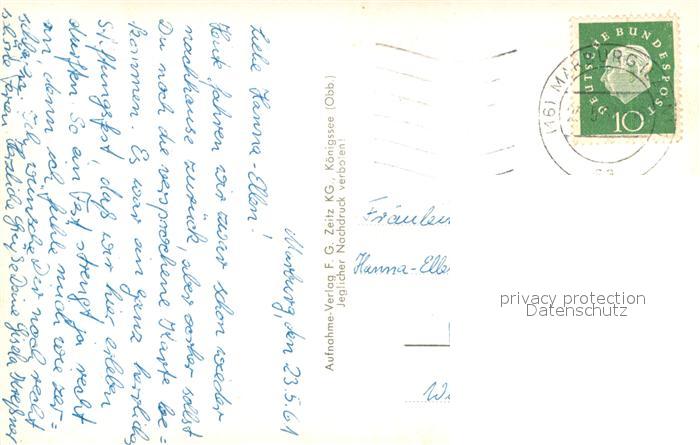 Marburg, den 23.5.61
Liebe Hanna-Ellen!
Heut fahren wir zwar schon wieder
nachhause zurück, aber vorher sollst
Du noch die versprochene Karte be=
kommen. Es war ein ganz herrliches
Stiftungsfest, daß wir hier erleben
durften. So ein Fest strengt ja recht
an, denn ich fühle mich wie zer=
schlagen. Ich wünsche Dir noch recht
schöne Ferien. Herzliche Grüße Deine Gisela
Aufnahme-Verlag F. G. Zeitz KG., Königssee (Obb.)
Jeglicher Nachdruck verboten!
DEUTSCHE BUNDESPOST
10
(16) MARBURG
Fräulein
Hanna-Ellen
privacy protection
Datenschutz